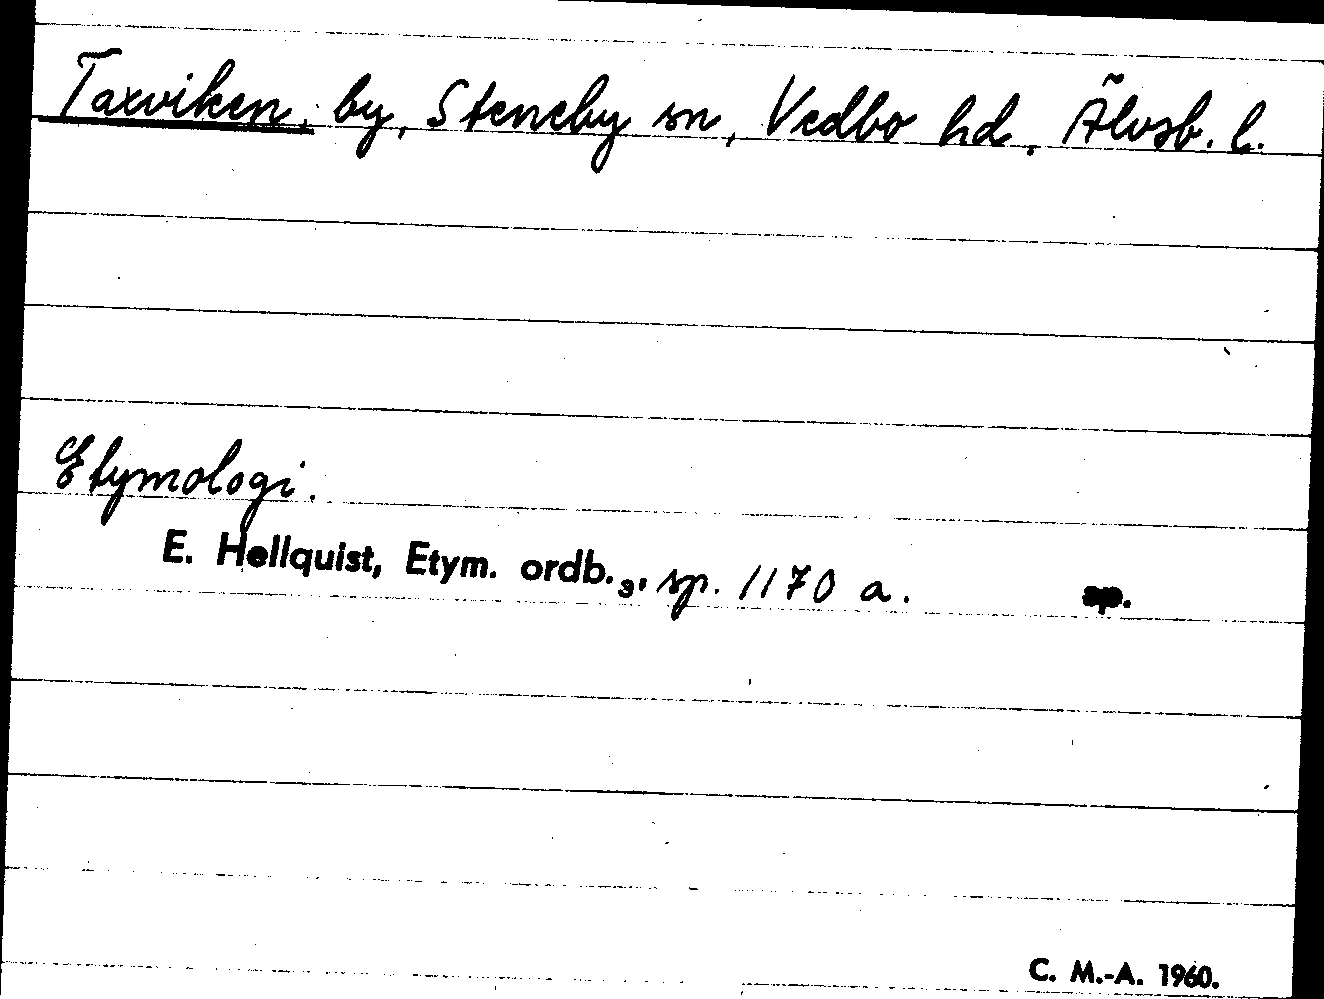 Taxviken, by, Steneby sn, Vedbo hd, Älvsb. l.
Etymologi.
E. Hellquist, Etym. ordb.₃, sp. 1170 a. sp.
C. M.-A. 1960.